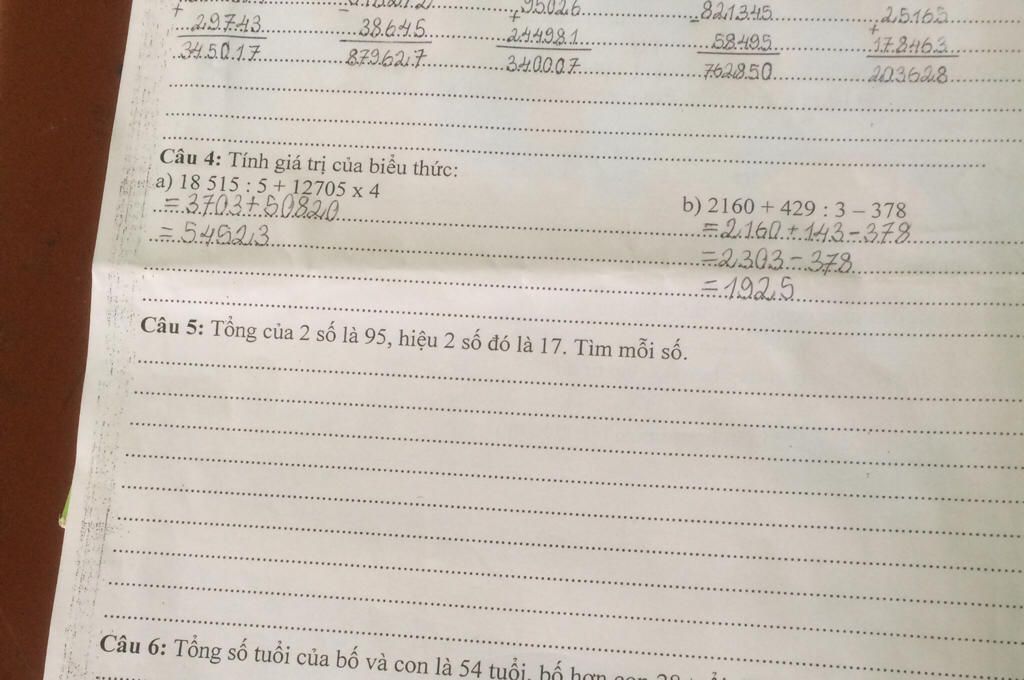 + 95026 821345 25165
29743 38645 + 244981 - 58495 + 178463
345017 879627 340007 762850 203628
Câu 4: Tính giá trị của biểu thức:
a) 18 515 : 5 + 12705 x 4
b) 2160 + 429 : 3 – 378
= 3703 + 50820
= 2160 + 143 - 378
= 54523
= 2303 - 378
= 1925
Câu 5: Tổng của 2 số là 95, hiệu 2 số đó là 17. Tìm mỗi số.
Câu 6: Tổng số tuổi của bố và con là 54 tuổi, bố hơn con